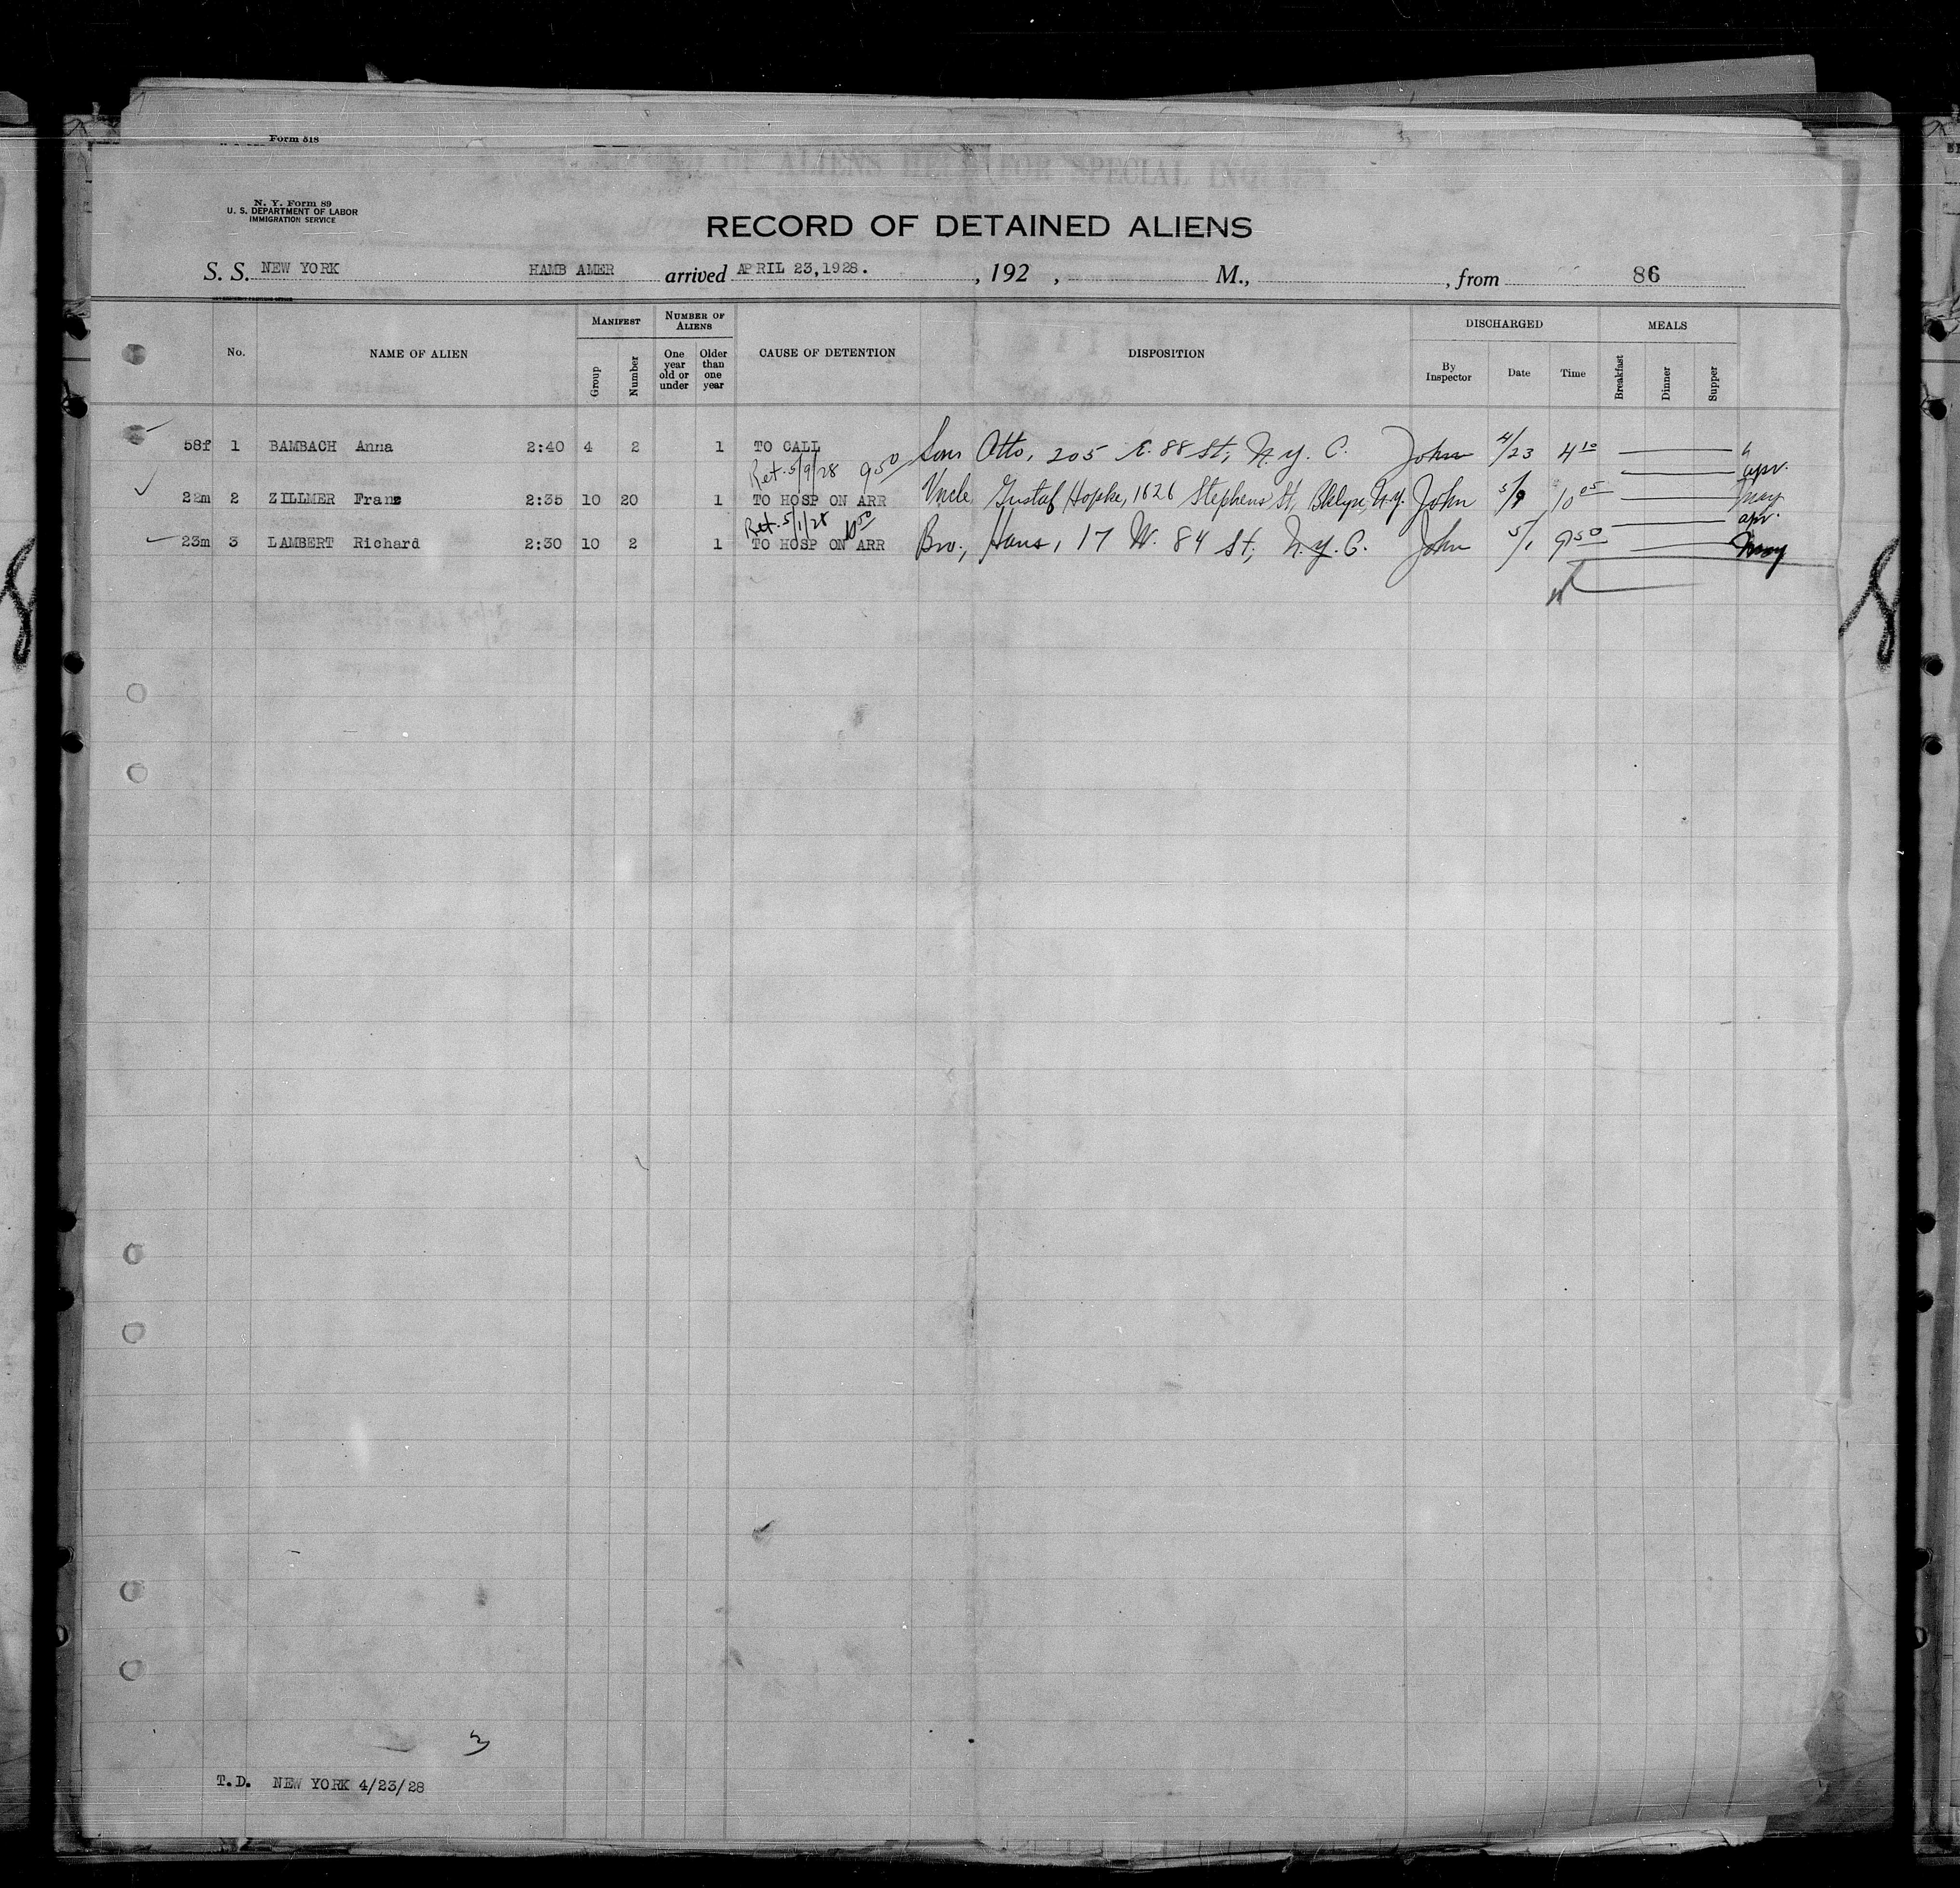 Form 518
OF ALIENS HELD FOR SPECIAL INQUIRY
N. Y. Form 89
U. S. DEPARTMENT OF LABOR
IMMIGRATION SERVICE
RECORD OF DETAINED ALIENS
S. S. NEW YORK HAMB AMER arrived APRIL 23,1928. , 192 , M., , from 86
No. NAME OF ALIEN MANIFEST Group Number NUMBER OF ALIENS One year old or under Older than one year CAUSE OF DETENTION DISPOSITION DISCHARGED By Inspector Date Time MEALS Breakfast Dinner Supper
58f 1 BAMBACH Anna 2:40 4 2 1 TO CALL Son Otto, 205 E. 88 St, N.Y.C. John 4/23 4 10
Ret. 5/9/28 9 50 apr.
22m 2 ZILLMER Franz 2:35 10 20 1 TO HOSP ON ARR Uncle Gustaf Hopke, 1626 Stephens St, Bklyn, N.Y. John 5/9 10 05 may
Ret. 5/1/28 10 50 apr.
23m 3 LAMBERT Richard 2:30 10 2 1 TO HOSP ON ARR Bro., Hans, 17 W. 84 St, N.Y.C. John 5/1 9 50 may
3
T.D. NEW YORK 4/23/28